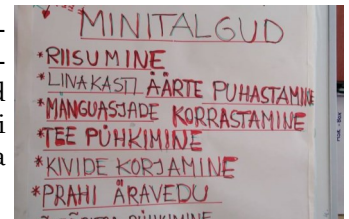 MINITALGUD
*RIISUMINE
*LINAKASTI ÄÄRTE PUHASTAMINE
*MÄNGUASJADE KORRASTAMINE
*TEE PÜHKIMINE
*KIVIDE KORJAMINE
*PRAHI ÄRAVEDU
PÜHKIMINE